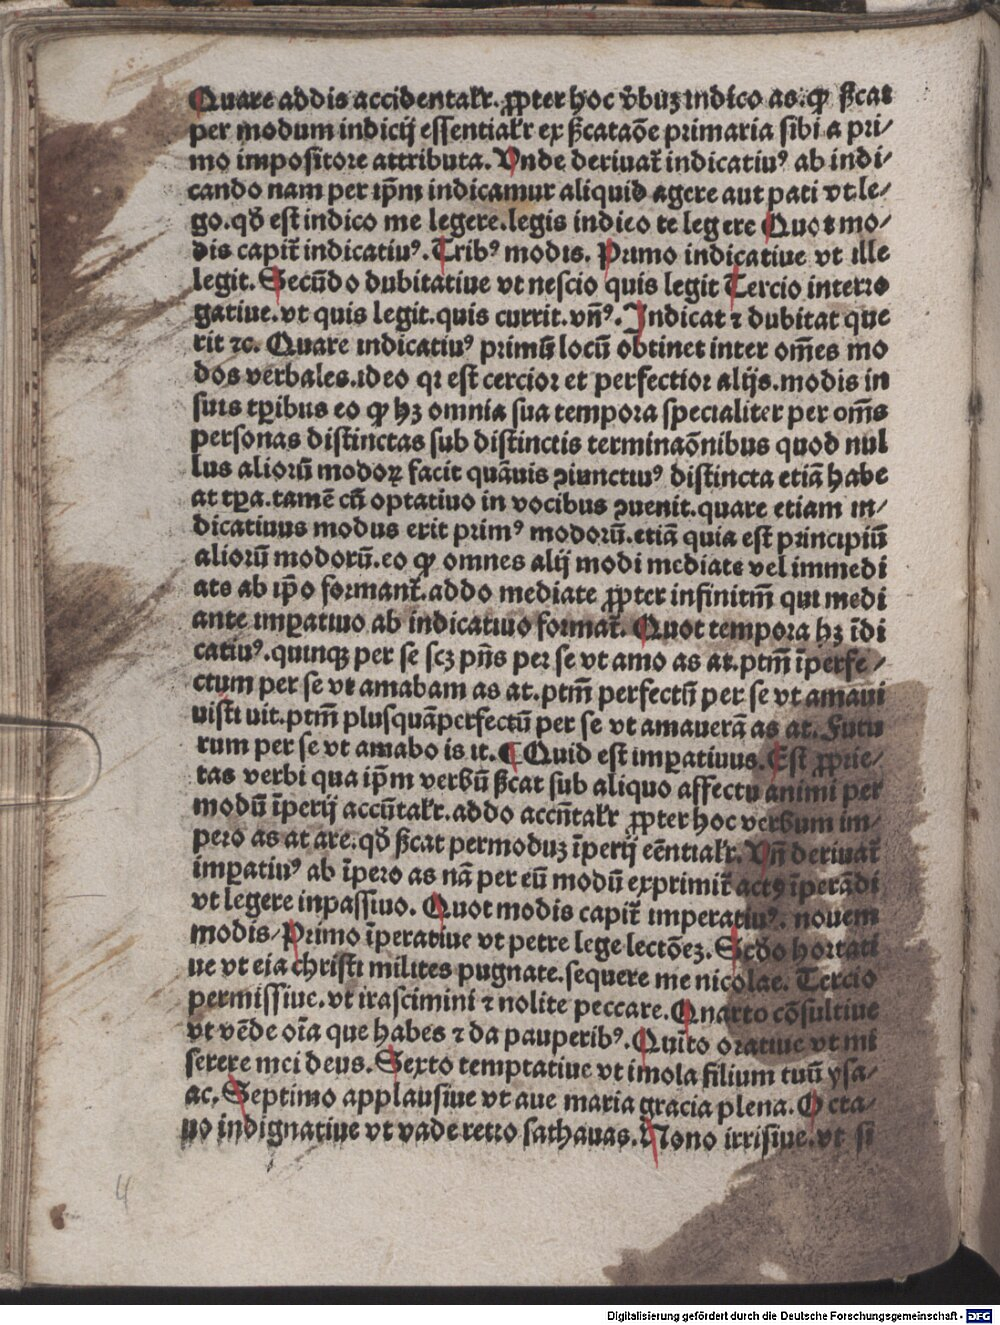 Quare addis accidentalr̃. ꝓpter hoc v̄buꝫ indico as.ꝙ ßcat
per modum indicij essentialr̃ ex ßcataōe primaria sibi a pri⸗
mo impositore attributa. Vnde deriuat̃ indicatiuꝰ ab indi⸗
cando nam per ip̄m indicamur aliquid agere aut pati vt le⸗
go.qd̄ est indico me legere.legis indico te legere Quot mo⸗
dis capit̃ indicatiuꝰ.Tribꝰ modis. Primo indicatiue vt ille
legit. Secūdo dubitatiue vt nescio quis legit Tercio interro
gatiue.vt quis legit.quis currit.vn̄ꝰ. Indicat ⁊ dubitat que
rit ⁊c. Quare indicatiuꝰ primū locū obtinet inter om̄es mo
dos verbales.ideo qꝛ est cercior et perfectior alijs.modis in
suis tꝑibus eo ꝙ hꝫ omnia sua tempora specialiter per om̄s
personas distinctas sub distinctis terminaōnibus quod nul
lus aliorū modoꝝ facit quāuis ꝯiunctiuꝰ distincta etiā habe
at tꝑa.tamē cū optatiuo in vocibus ꝯuenit.quare etiam in⸗
dicatiuus modus erit primꝰ modorū.etiā quia est principiū
aliorū modorū.eo ꝙ omnes alij modi mediate vel immedi
ate ab ip̄o formant̃.addo mediate ꝓpter infinitm̄ qui medi
ante imꝑatiuo ab indicatiuo format̃. Quot tempora hꝫ īdi
catiuꝰ.quinqꝫ per se scꝫ pn̄s per se vt amo as at.ptm̄ īperfe⸗
ctum per se vt amabam as at.ptm̄ perfectū per se vt amaui
uisti uit.ptm̄ plusquāperfectū per se vt amauerā as at. Futu
rum per se vt amabo is it.¶ Quid est imꝑatiuus. Est ꝓprie⸗
tas verbi qua ip̄m verbū ßcat sub aliquo affectu animi per
modū īperij accn̄talr̃.addo accn̄talr̃ ꝓpter hoc verbum im⸗
pero as at are.qd̄ ßcat permoduꝫ īperij eēntialr̃. Vn̄ deriuat̃
imꝑatiuꝰ ab īpero as nā per eū modū exprimit̃ actꝰ īperādi
vt legere inpassiuo. Quot modis capit̃ imperatiuꝰ. nouem
modis⸗Primo īperatiue vt petre lege lectōeꝫ. Scd̄o hortati
ue vt eia christi milites pugnate.sequere me nicolae. Tercio
permissiue.vt irascimini ⁊ nolite peccare.Quarto cōsultiue
vt vēde oīa que habes ⁊ da pauperibꝰ.Quīto oratiue vt mi
serere mei deus.Sexto temptatiue vt imola filium tuū ysa⸗
ac.Septimo applausiue vt aue maria gracia plena.Octa⸗
uo indignatiue vt vade retro sathanas.Nono irrisiue.vt si
4
Digitalisierung gefördert durch die Deutsche Forschungsgemeinschaft - DFG